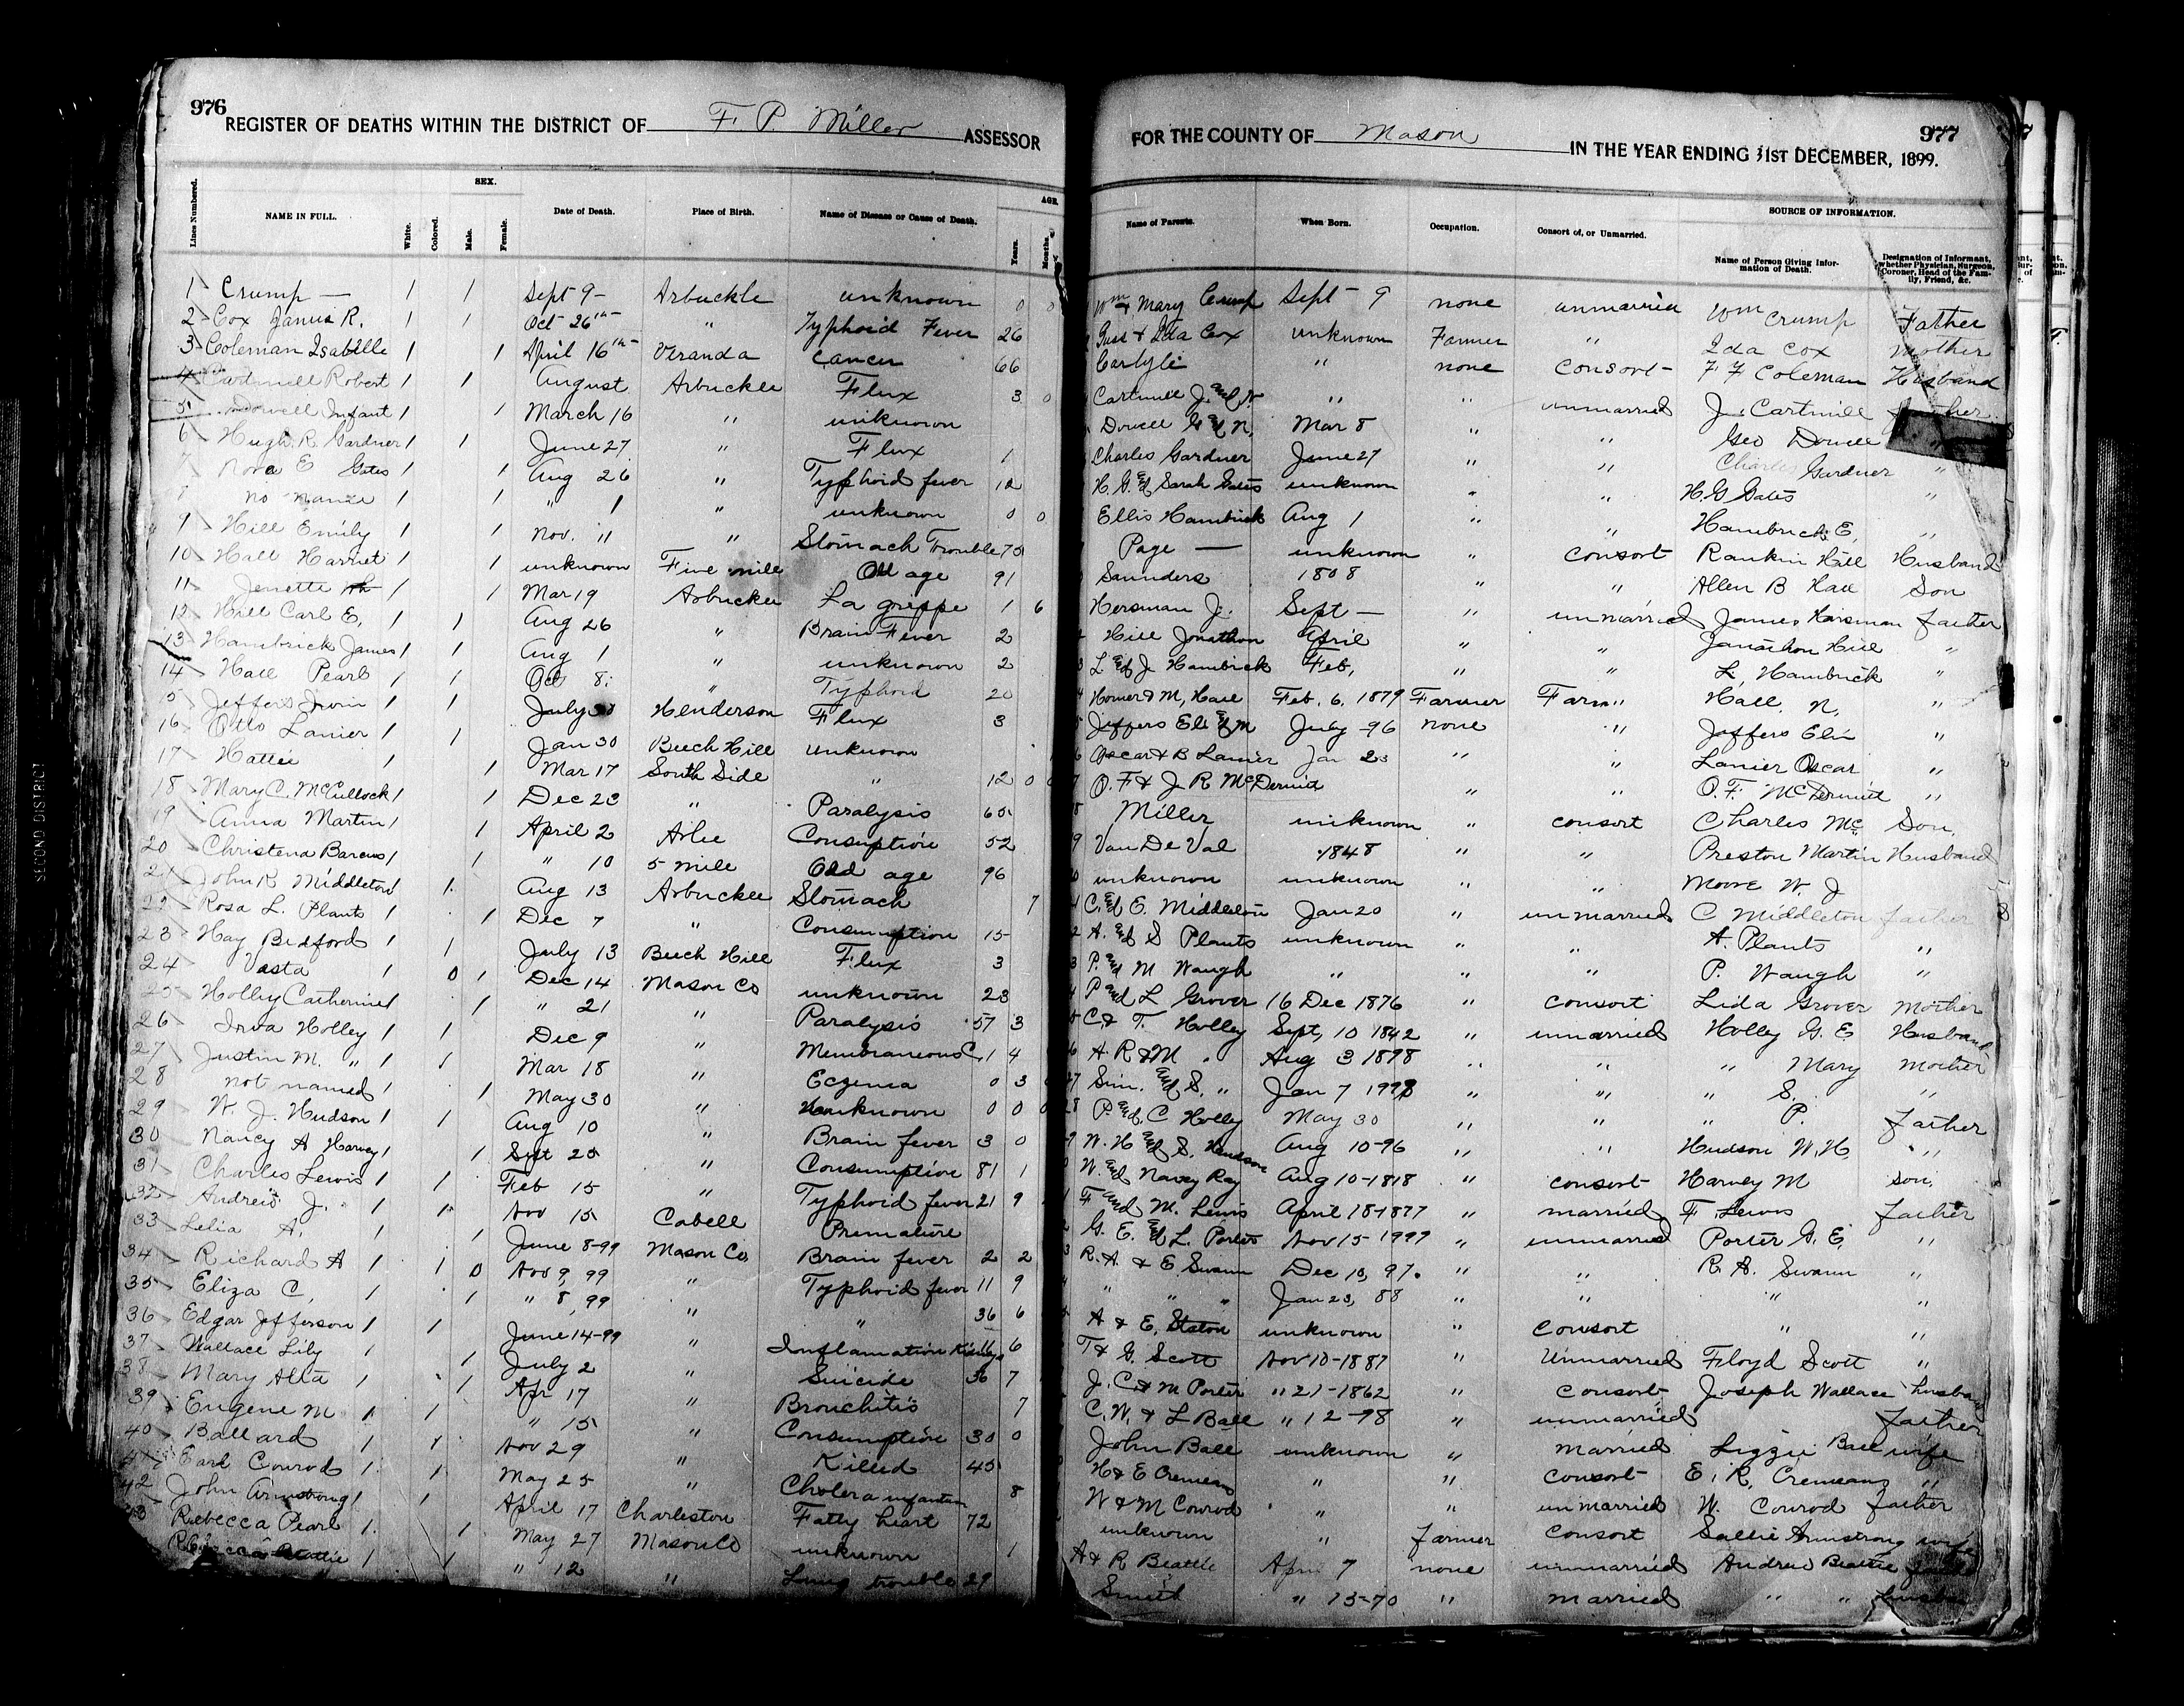 976
REGISTER OF DEATHS WITHIN THE DISTRICT OF F. P. Miller ASSESSOR
Lines Numbered. NAME IN FULL. White. Colored. SEX. Male. Female. Date of Death. Place of Birth. Name of Disease or Cause of Death. AGE. Years. Months.
1 Crump — 1 1 Sept 9 - Arbuckle unknown 0 0
2 Cox James R. 1 1 Oct 26th " Typhoid Fever 26
3 Coleman Isabelle 1 1 April 16th Veranda Cancer 66
4 Cartmill Robert 1 1 August Arbuckle Flux 3 0
5 Dowell Infant 1 1 March 16 " unknown
6 Hugh R. Gardner 1 1 June 27 " Flux 1
7 Nora E Gates 1 1 Aug 26 " Typhoid fever 12
8 no name 1 1 " 1 " unknown 0 0
9 Hill Emily 1 1 Nov. 11 " Stomach Trouble 75
10 Hall Harriet 1 1 unknown Five mile Old age 91
11 Jenette 1 1 Mar 19 Arbuckle La grippe 1 6
12 Hill Carl E, 1 1 Aug 26 " Brain Fever 2
13 Hambrick James 1 1 Aug 1 " unknown 2
14 Hall Pearl 1 1 Oct 8 " Typhoid 20
15 Jeffers Irvin 1 1 July 30 Henderson Flux 3
16 Otto Lanier 1 1 Jan 30 Beech Hill unknown
17 Hattie 1 1 Mar 17 South Side " 12 0 0
18 Mary C. McCullock 1 1 Dec 23 " Paralysis 65
19 Anna Martin 1 1 April 2 Arlee Consuption 52
20 Christena Barcus 1 1 " 10 5 mile Old age 96
21 John R Middleton 1 1 Aug 13 Arbuckle Stomach 7
22 Rosa L. Plants 1 1 Dec 7 " Consumption 15
23 Hay Bedford 1 1 July 13 Beech Hill Flux 3
24 Vasta 1 0 1 Dec 14 Mason Co unknown 23
25 Holley Catherine 1 1 " 21 " Paralysis 57 3
26 Irva Holley 1 1 Dec 9 " Membraneous C. 1 4
27 Justin M. " 1 1 Mar 18 " Eczema 0 3
28 not named 1 1 May 30 " unknown 0 0 0
29 W. J. Hudson 1 1 Aug 10 " Brain fever 3 0
30 Nancy A Harvey 1 1 Sept 25 " Consumption 81 1
31 Charles Lewis 1 1 Feb 15 " Typhoid fever 21 9
32 Andrew J. 1 1 Nov 15 Cabell Premature
33 Lelia A. 1 1 June 8-99 Mason Co Brain fever 2 2
34 Richard A 1 1 0 Nov 9, 99 " Typhoid fever 11 9
35 Eliza C, 1 1 " 8, 99 " " 36 6
36 Edgar Jefferson 1 1 June 14-99 " Inflamation Kidneys 11 6
37 Wallace Lily 1 1 July 2 " Suicide 36 7
38 Mary Alta 1 1 Apr 17 " Bronchitis 7
39 Eugene M 1 1 " 15 " Consumption 30 0
40 Ballard 1 1 Nov 29 " Killed 45
41 Earl Conrod 1 1 May 25 " Cholera infantum 8
42 John Armstrong 1 1 April 17 Charleston Fatty heart 72
43 Rebecca Pearl 1 1 May 27 Mason Co unknown 1
Rebecca Beattie 1 1 " 12 " Lung trouble 29
977
FOR THE COUNTY OF Mason IN THE YEAR ENDING 31ST DECEMBER, 1899.
Name of Parents. When Born. Occupation. Consort of, or Unmarried. SOURCE OF INFORMATION. Name of Person Giving Information of Death. Designation of Informant, whether Physician, Surgeon, Coroner, Head of the Family, Friend, &c.
Wm & Mary Crump Sept - 9 none unmarried Wm Crump Father
& Ida Cox unknown Farmer " Ida Cox Mother
Carlyle " none Consort F F Coleman Husband
Cartmill J. and N " " unmarried J. Cartmill father
Dowell G and N, Mar 8 " " Geo Dowell "
Charles Gardner June 27 " " Charles Gardner "
H. G. and Sarah Gates unknown " " H. G Gates "
Ellis Hambrick Aug 1 " " Hambrick E, "
Page — unknown " consort Rankin Hill Husband
Saunders 1808 " " Allen B Hall Son
Hersman J. Sept — " unmarried James Harsman father
Hill Jonathan April " " Janathon Hill "
L and J Hambrick Feb, " " L, Hambrick "
Homer & M, Hall Feb. 6, 1879 Farmer Farm " Hall, N, "
Jeffers Eli and M July -96 none " Jeffers Eli "
Oscar & B Lanier Jan 23 " " Lanier Oscar "
O. F & J. R McDermit " " O. F. McDermitt "
Miller unknown " consort Charles Mc Son,
Van De Val 1848 " " Preston Martin Husband
unknown unknown " " Moore W J
C. and E. Middleton Jan 20 " unmarried C Middleton father
A. and S Plants unknown " " A. Plants "
P. and M Waugh " " " P. Waugh "
P and L Grover 16 Dec 1876 " consort Lida Grover Mother
C. & T. Holley Sept, 10 1842 " unmarried Holley G. E Husband
A. R & M " Aug 3 1898 " " " Mary Mother
Sim. and S. " Jan 7 1998 " " " S. "
P. and C Holley May 30 " " " P. father
W. H and S. Hudson Aug 10-96 " " Hudson W. H, "
W. and Nancy Ray Aug 10-1818 " consort Harvey M son,
F and M. Lewis April 18-1877 " married F Lewis father
G. E. and L. Porter Nov 15-1999 " unmarried Porter G. E, "
R. A. & E Swann Dec 10, 97. " " R. A. Swann "
" " " Jan 23, 88 " " " "
A & E. Staton unknown " Consort " "
T & G. Scott Nov 10-1887 " Unmarried Floyd Scott "
J. C. & M Porter " 21-1862 " consort Joseph Wallace husband
C. W. & L Ball " 12-98 " unmarried father
John Ball unknown " married Lizzie Ball wife
H & E Cremeans " " consort E, R, Cremeans "
W & M Conrod " " unmarried W. Conrod father
unknown " farmer consort Sallie Armstrong wife
A & R Beattie April 7 none unmarried Andrew Beattie
Smith " 15-70 " married " " husband
SECOND DISTRICT